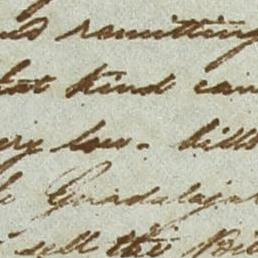 remitting
that kind can
very low. bills
Guadalajar
sell the Bil